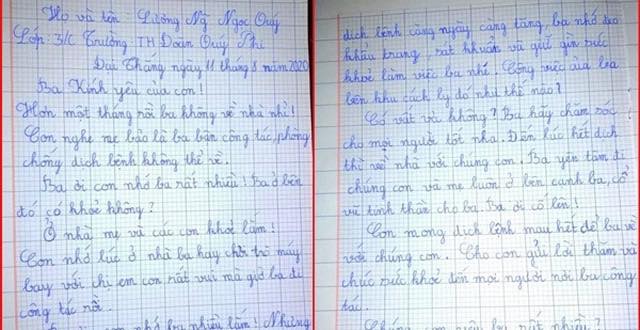 Họ và tên: Lương Ng Ngọc Quý
Lớp: 3/C Trường TH Đoàn Quý Phi
Đại Thắng ngày 11 tháng 8 năm 2020
Ba Kính yêu của con!
Hơn một tháng rồi ba không về nhà nhỉ!
Con nghe mẹ bảo là ba bận công tác, phòng
chống dịch bệnh không thể về.
Ba ơi con nhớ ba rất nhiều! Ba ở bên
đó có khoẻ không?
Ở nhà mẹ và các con khoẻ lắm!
Con nhớ lúc ở nhà ba hay chơi trò máy
bay với chị em con rất vui mà giờ ba đi
công tác rồi.
nhớ ba nhiều lắm! Nhưng
dịch bệnh càng ngày càng tăng, ba nhớ đeo
khẩu trang, sát khuẩn và giữ gìn sức
khoẻ làm việc ba nhé. Công việc của ba
bên khu cách ly đó như thế nào?
Có vất vả không? Ba hãy chăm sóc
cho mọi người tốt nha. Đến lúc hết dịch
thì về nhà với chúng con. Ba yên tâm đi
chúng con và mẹ luôn ở bên cạnh ba, cổ
vũ tinh thần cho ba. Ba ơi cố lên!
Con mong dịch bệnh mau hết để ba về
với chúng con. Cho con gửi lời thăm và
chúc sức khoẻ đến mọi người nơi ba công
tác.